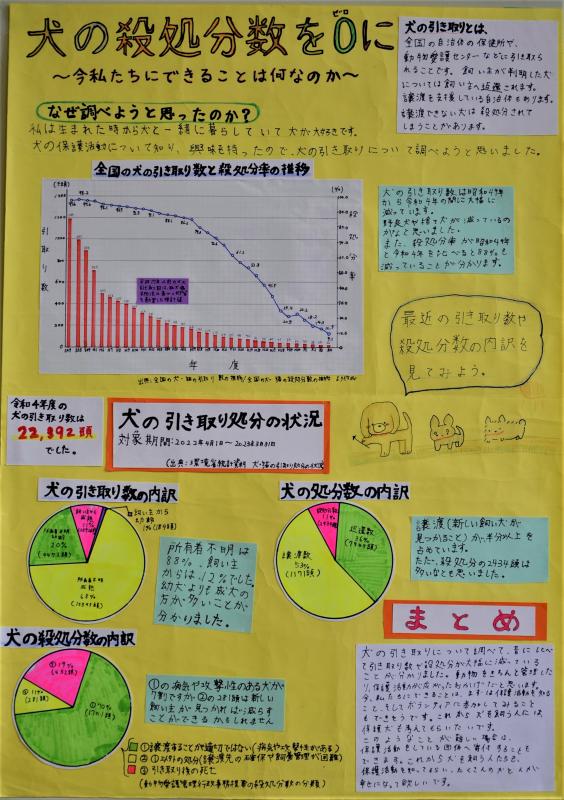 犬の殺処分数を0に
ゼロ
～今私たちにできることは何なのか～
犬の引き取りとは、
全国の自治体の保健所や、
動物愛護センターなどに引き取ら
れることです。飼い主が判明した犬
については飼い主へ返還されます。
譲渡を支援している自治体もあります。
譲渡できない犬は殺処分されて
しまうことがあります。
なぜ調べようと思ったのか？
私は生まれた時から犬と一緒に暮らしていて犬が大好きです。
犬の保護活動について知り、興味を持ったので、犬の引き取りについて調べようと思いました。
全国の犬の引き取り数と殺処分率の推移
引取り数
殺処分率
年度
犬の引き取り数は昭和49年
から令和4年の間に大幅に
減っています。
野良犬や捨て犬が減っているの
かなと思いました。
また、殺処分率が昭和49年
と令和4年を比べると88%も
減っていることが分かります。
最近の引き取り数や
殺処分数の内訳を
見てみよう。
令和4年度の
犬の引き取り数は
22,392頭
でした。
犬の引き取り処分の状況
対象期間：2022年4月1日～2023年3月31日
犬の引き取り数の内訳
20%
68%
犬の処分数の内訳
返還数
36%
譲渡数
53%
11%
所有者不明は
88%、飼い主
からは12%でした。
幼犬よりも成犬の
方が多いことが
分かりました。
譲渡(新しい飼い犬が
見つかること)が、半分以上を
占めています。
ただ、殺処分の2434頭は
多いなとも思いました。
犬の殺処分数の内訳
②11%
③19%
①70%
①の病気や攻撃性のある犬が
7割ですが②の281頭は新しい
飼い主が見つかれば減らす
ことができるかもしれません
①譲渡することが適切ではない(病気や攻撃性がある)
②①以外の処分(譲渡先の確保や飼養管理が困難)
③引き取り後の死亡
(動物愛護管理行政事務提要の殺処分数の分類)
まとめ
犬の引き取りについて調べて、昔に比べ
て引き取り数や殺処分が大幅に減っている
ことが分かりました。動物をきちんと管理した
り、保護活動が広がったおかげだと思います。
今、私たちにできることは、まずは保護活動を知る
こと、そしてボランティアに参加してみること
もできそうです。これから犬を飼う人には
保護犬も考えてもらいたいです。
このようなことが難しい場合は、
保護活動をしている団体へ寄付することも
できます。これから犬を飼う人たちも、
保護活動を知ってもらい、たくさんの犬と人が
幸せになって欲しいです。